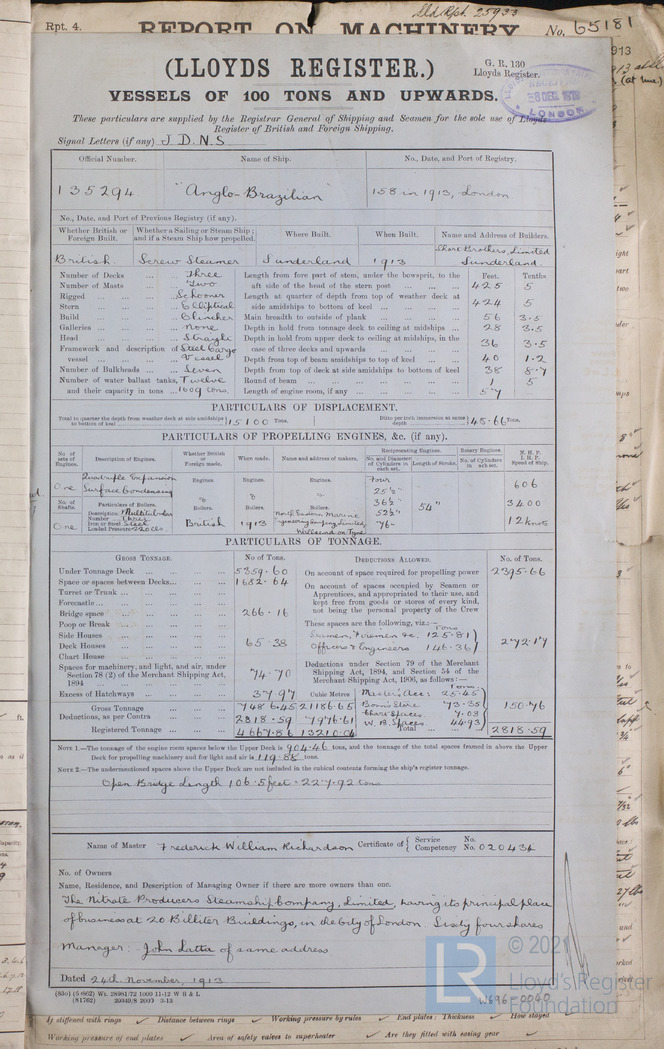 Rpt. 4.
Dld Rpt. 25933
REPORT ON MACHINERY
No. 65181
(LLOYDS REGISTER.)
G. R. 130
Lloyds Register.
VESSELS OF 100 TONS AND UPWARDS.
LONDON
These particulars are supplied by the Registrar General of Shipping and Seamen for the sole use of Lloyds
Register of British and Foreign Shipping.
Signal Letters (if any) J D N S
Official Number. Name of Ship. No., Date, and Port of Registry.
135294 "Anglo-Brazilian" 158 in 1913, London
No., Date, and Port of Previous Registry (if any).
Whether British or Foreign Built. Whether a Sailing or Steam Ship; and if a Steam Ship how propelled. Where Built. When Built. Name and Address of Builders.
British Screw Steamer Sunderland 1913 Short Brothers, Limited Sunderland
Number of Decks Three Length from fore part of stem, under the bowsprit, to the Feet. Tenths.
Number of Masts Two aft side of the head of the stern post 425 5
Rigged Schooner Length at quarter of depth from top of weather deck at
Stern Elliptical side amidships to bottom of keel 424 5
Build Clincher Main breadth to outside of plank 56 3.5
Galleries None Depth in hold from tonnage deck to ceiling at midships 28 3.5
Head Straight Depth in hold from upper deck to ceiling at midships, in the
Framework and description of Steel Cargo case of three decks and upwards 36 3.5
vessel Vessel Depth from top of beam amidships to top of keel 40 1.2
Number of Bulkheads Seven Depth from top of deck at side amidships to bottom of keel 38 8.7
Number of water ballast tanks, Twelve Round of beam 1 5
and their capacity in tons 1609 tons. Length of engine room, if any 57
PARTICULARS OF DISPLACEMENT.
Total to quarter the depth from weather deck at side amidships to bottom of keel 15100 Tons. Ditto per inch immersion at same depth 45.66 Tons.
PARTICULARS OF PROPELLING ENGINES, &c. (if any).
No. of sets of Engines. Description of Engines. Whether British or Foreign made. When made. Name and address of makers. Reciprocating Engines. Rotary Engines. N. H. P. I. H. P. Speed of Ship.
No. and Diameter of Cylinders in each set. Length of Stroke. No. of Cylinders in each set.
One Quadruple Expansion Surface Condensing Engines. Engines. Engines. Four 25½" 606
No. of Shafts. Particulars of Boilers. Boilers. Boilers. Boilers. 36½" 54" 3400
Description Multitubular
Number Three
Iron or Steel Steel
Loaded Pressure 220 lbs.
One British 1913 North Eastern Marine Engineering Company, Limited, Wallsend on Tyne 52½" 76" 12 knots
PARTICULARS OF TONNAGE.
GROSS TONNAGE. No. of Tons. DEDUCTIONS ALLOWED. No. of Tons.
Under Tonnage Deck 5359.60 On account of space required for propelling power 2395.66
Space or spaces between Decks 1652.64 On account of spaces occupied by Seamen or
Turret or Trunk Apprentices, and appropriated to their use, and
Forecastle kept free from goods or stores of every kind,
Bridge space 266.16 not being the personal property of the Crew
Poop or Break These spaces are the following, viz.:— Tons
Side Houses Seamen, Firemen &c. 125.81
Deck Houses 65.38 Officers & Engineers 146.36 272.17
Chart House
Spaces for machinery, and light, and air, under Section 78 (2) of the Merchant Shipping Act, 1894 74.70
Deductions under Section 79 of the Merchant Shipping Act, 1894, and Section 54 of the Merchant Shipping Act, 1906, as follows:—
Excess of Hatchways 37.97 Cubic Metres Master's Acc: 25.45
Gross Tonnage 7486.45 21186.65 Bosn's Store 73.35 150.76
Deductions, as per Contra 2818.59 7976.61 Chart Spaces 7.03
W. B. Spaces 44.93
Registered Tonnage 4667.86 13210.04 Total 2818.59
NOTE 1.—The tonnage of the engine room spaces below the Upper Deck is 904.46 tons, and the tonnage of the total spaces framed in above the Upper
Deck for propelling machinery and for light and air is 119.88 tons.
NOTE 2.—The undermentioned spaces above the Upper Deck are not included in the cubical contents forming the ship's register tonnage.
Open Bridge Length 106.5 feet = 227.92 tons
Name of Master Frederick William Richardson Certificate of { Service No. Competency No. 020434
No. of Owners
Name, Residence, and Description of Managing Owner if there are more owners than one.
The Nitrate Producers Steamship Company, Limited, having its principal place
of business at 20 Billiter Buildings, in the City of London Sixty four shares
Manager: John Latta of same address
Dated 24th November, 1913
© 2021
Lloyd's Register
Foundation
W696-0040
If stiffened with rings Distance between rings Working pressure by rules End plates: Thickness How stayed
Working pressure of end plates Area of safety valves to superheater Are they fitted with easing gear